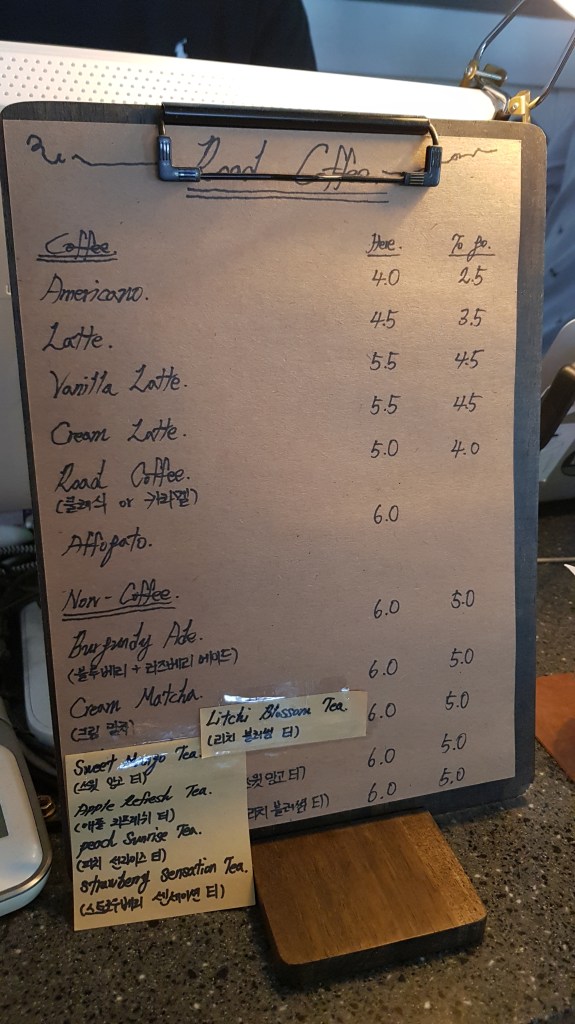 Road Coffee
Coffee. Here. To go.
Americano. 4.0 2.5
Latte. 4.5 3.5
Vanilla Latte. 5.5 4.5
Cream Latte. 5.5 4.5
Road Coffee. 5.0 4.0
(클래식 or 카라멜)
Affogato. 6.0
Non-Coffee.
Burgundy Ade. 6.0 5.0
(블루베리 + 라즈베리 에이드)
Cream Matcha. 6.0 5.0
(크림 말차)
Litchi Blossom Tea. 6.0 5.0
(리치 블러썸 티)
Sweet Mango Tea. 6.0 5.0
(스윗 망고 티)
스윗 망고 티)
Apple Refresh Tea. 6.0 5.0
(애플 리프레쉬 티)
리치 블러썸 티)
peach Sunrise Tea.
(피치 선라이즈 티)
Strawberry Sensation Tea.
(스트로우베리 센세이션 티)